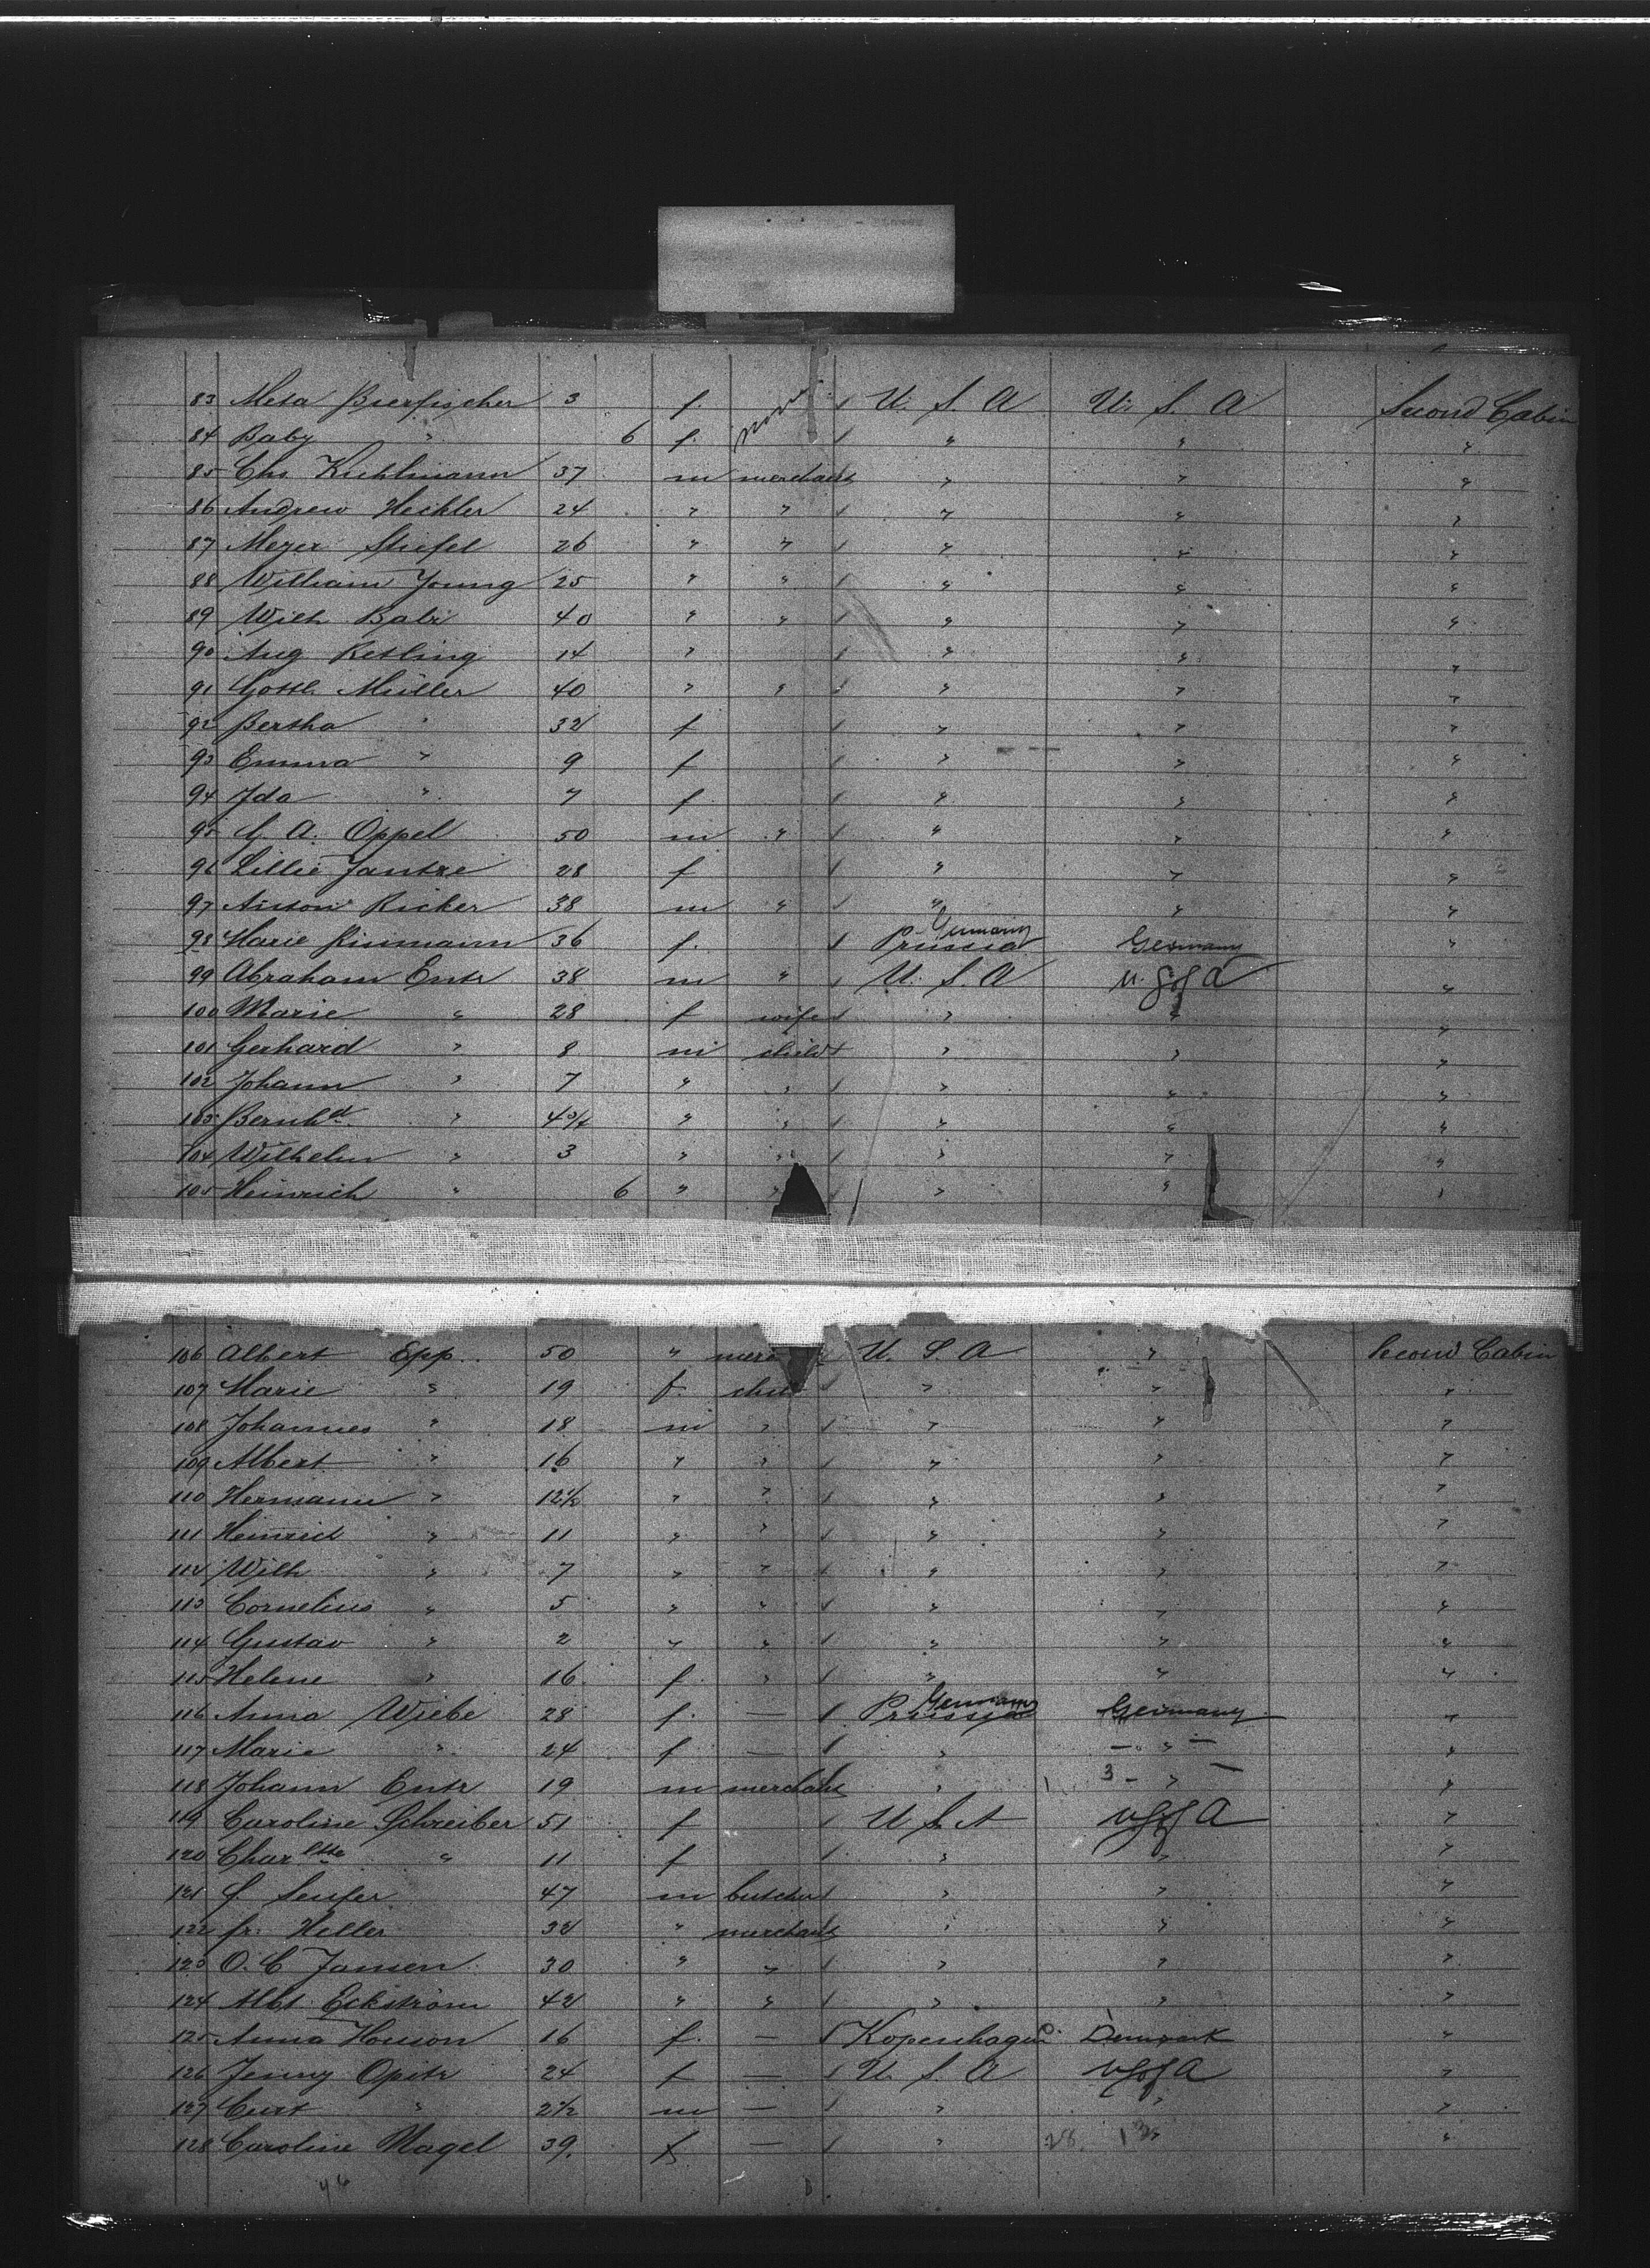 83 Meta Bierfischer 3 f. none U. S. A U. S. A Second Cabin
84 Baby " 6 f. " " "
85 Chs. Kuhlmann 37 m merchant " " "
86 Andrew Heckler 24 " " " " "
87 Meyer Stiefel 26 " " " " "
88 William Young 25 " " " " "
89 Wilh Balz 40 " " " " "
90 Aug Ketling 14 " " " "
91 Gottl. Müller 40 " " " " "
92 Bertha " 32 f " " "
93 Emma " 9 f " " "
94 Ida " 7 f " " "
95 G. A. Oppel 50 m " " " "
96 Lillie Jantze 28 f " " "
97 Anton Ricker 38 m " " " "
98 Marie Rinmann 36 f. Prussia Germany Germany "
99 Abraham Entz 38 m " U. S. A U. S of A "
100 Marie " 28 f wife " " "
101 Gerhard " 8 m child " " "
102 Johann " 7 " " " " "
103 Bernhd. " 4 3/4 " " " " "
104 Wilhelm " 3 " " " " "
105 Heinrich " 6 " " " " "
106 Albert Epp 50 " merc U. S. A " Second Cabin
107 Marie " 19 f. chil " " "
108 Johannes " 18 m " " " "
109 Albert " 16 " " " " "
110 Hermann " 12 1/2 " " " " "
111 Heinrich " 11 " " " " "
112 Wilh " 7 " " " " "
113 Cornelius " 5 " " " " "
114 Gustav " 2 " " " " "
115 Helene " 16 f. " " " "
116 Anna Wiebe 28 f. — Prussia Germany Germany "
117 Marie " 24 f — " — " — "
118 Johann Entz 19 m merchant " 3 - " — "
119 Caroline Schreiber 51 f U. S. A U S of A "
120 Charltte " 11 f " " "
121 J. Seufer 47 m butcher " " "
122 Fr. Heller 32 " merchant " " "
123 O. C Jansen 30 " " " " "
124 Albt. Eckström 42 " " " " "
125 Anna Honson 16 f. — Kopenhagen Denmark "
126 Jenny Opitz 24 f — U. S. A U S of A "
127 Curt " 2 1/2 m — " " "
128 Caroline Nagel 39. f — " "
46